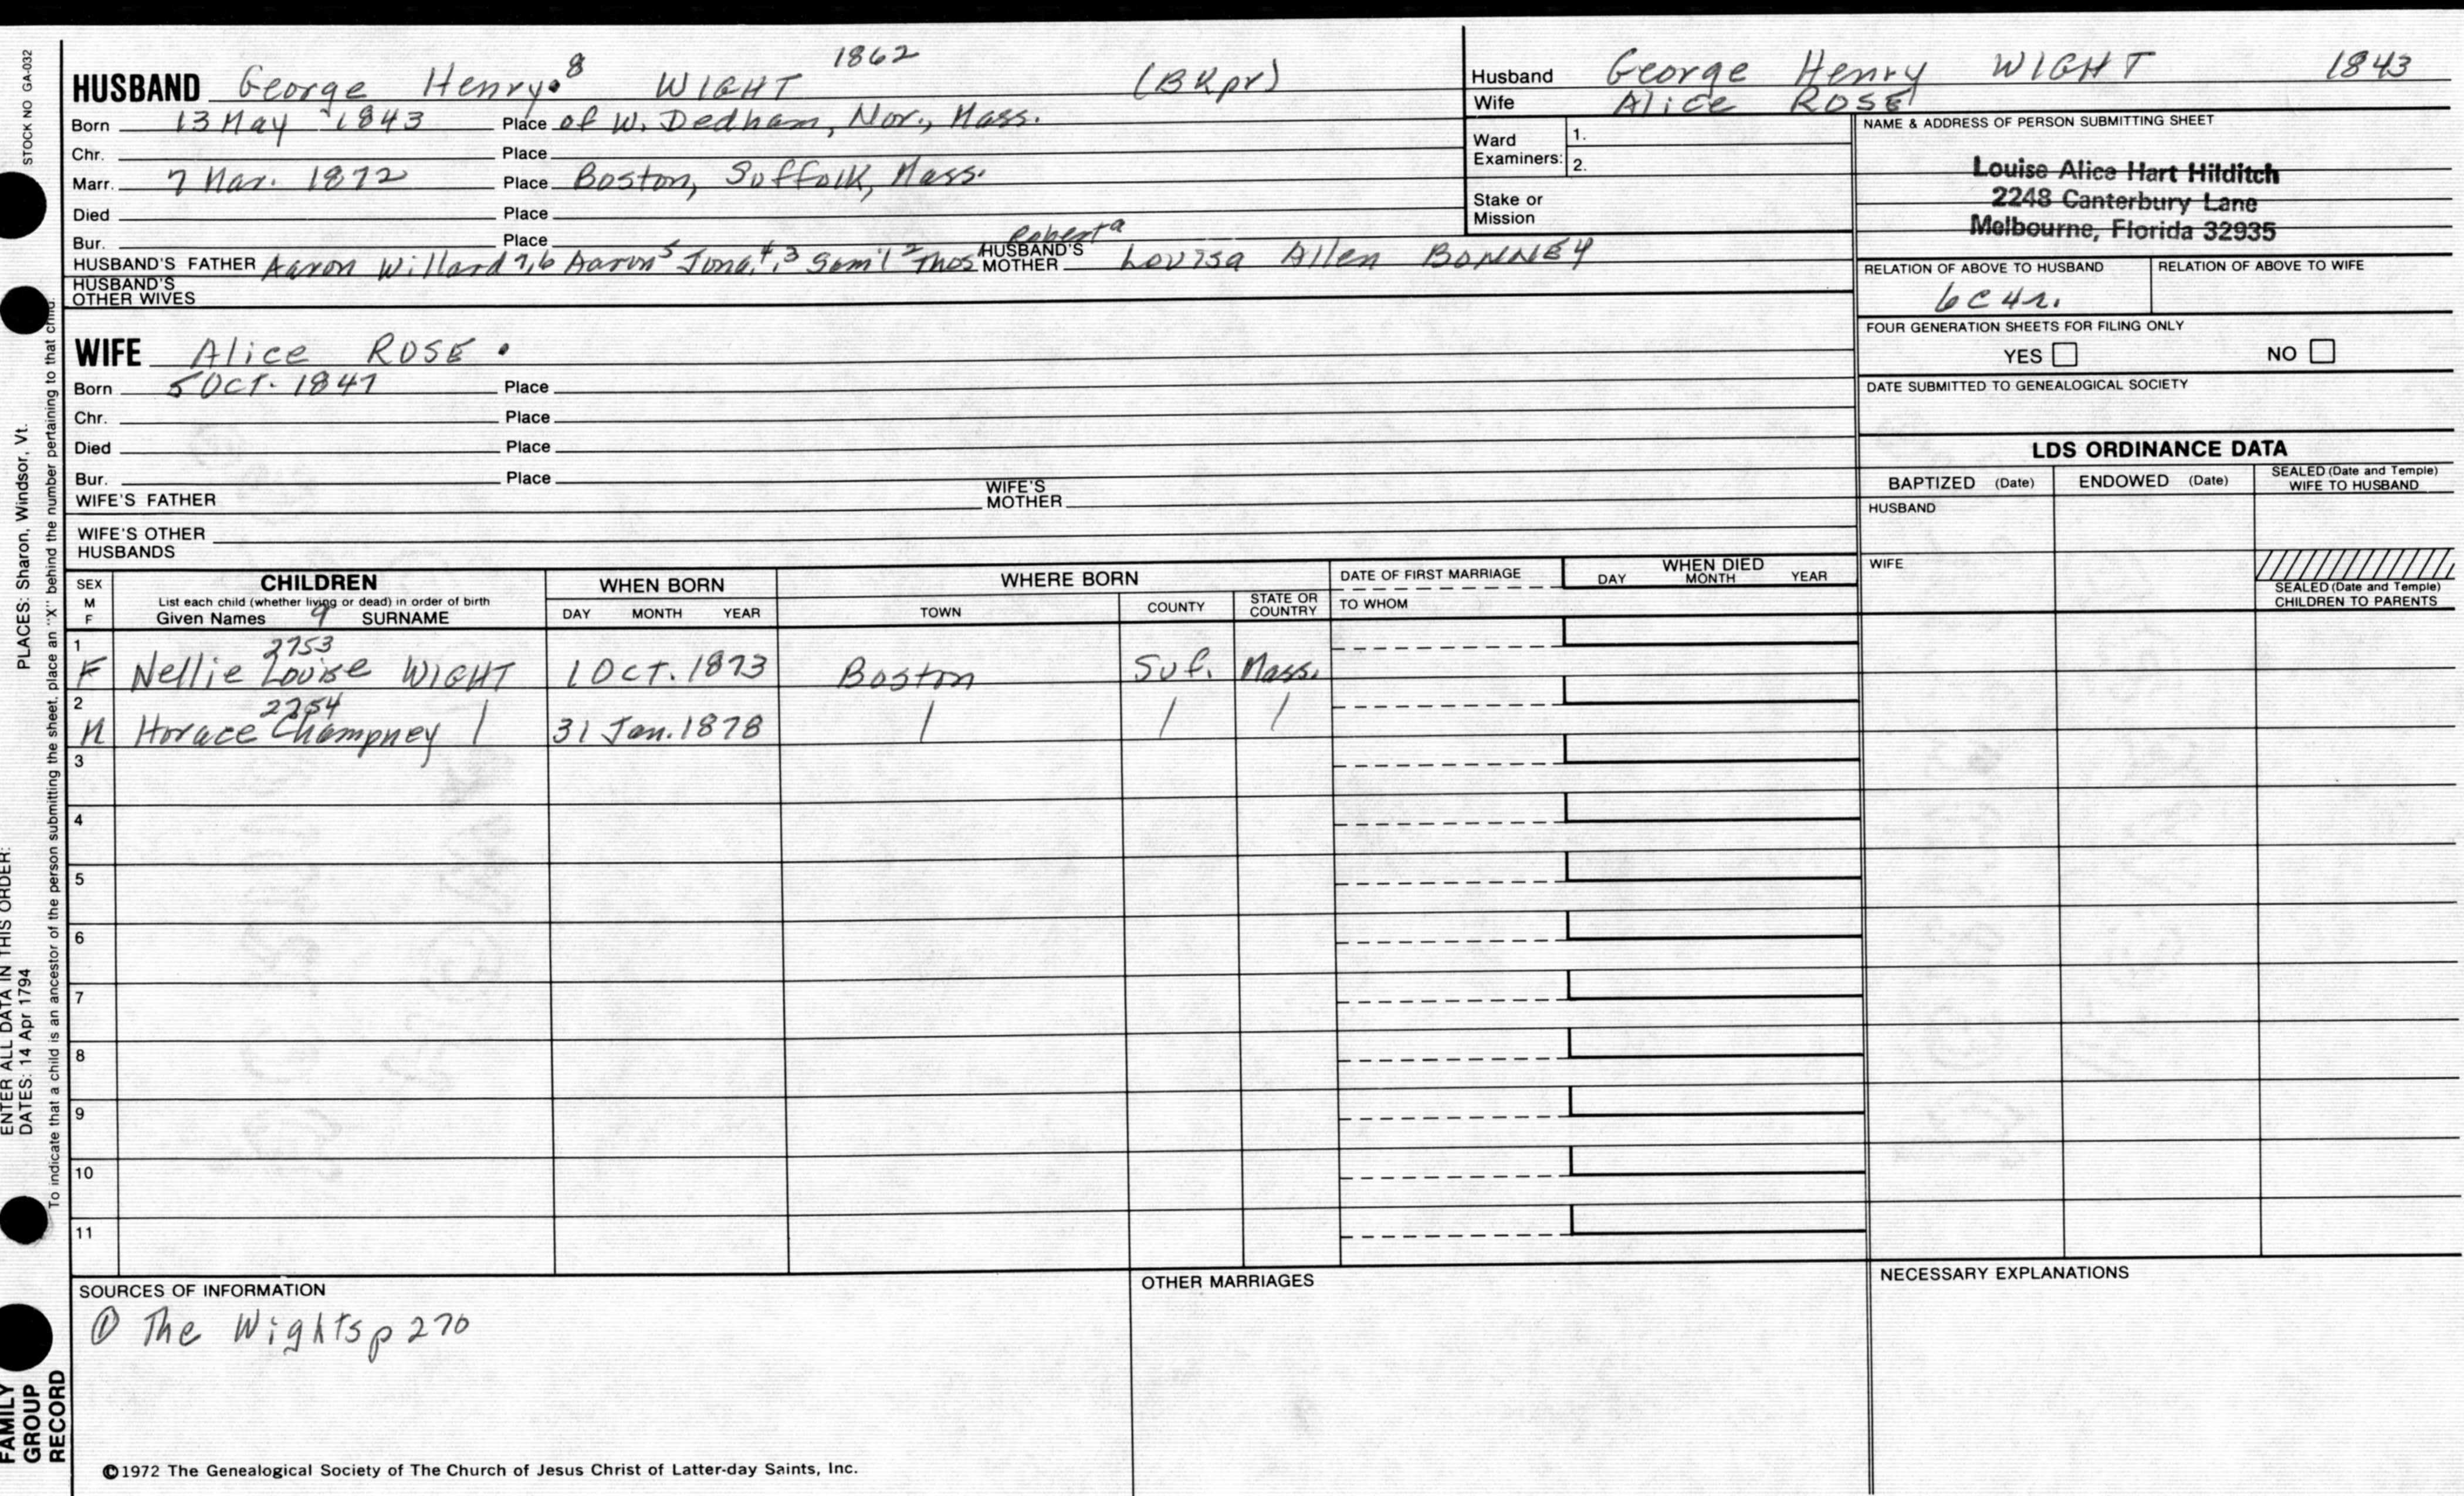 STOCK NO GA-032
PLACES: Sharon, Windsor, Vt.
ENTER ALL DATA IN THIS ORDER:
DATES: 14 Apr 1794
To indicate that a child is an ancestor of the person submitting the sheet, place an "X" behind the number pertaining to that child.
FAMILY
GROUP
RECORD
1862
HUSBAND George Henry.8 WIGHT (BKpr)
Born 13 May 1843 Place of W. Dedham, Nor., Mass.
Chr. Place
Marr. 7 Mar. 1872 Place Boston, Suffolk, Mass.
Died Place
Bur. Place
Roberta
HUSBAND'S FATHER Aaron Willard 7,6 Aaron5 Jona,4,3 Sam'l 2 Thos HUSBAND'S MOTHER Louisa Allen BONNEY
HUSBAND'S
OTHER WIVES
WIFE Alice ROSE.
Born 5 OCT. 1847 Place
Chr. Place
Died Place
Bur. Place
WIFE'S FATHER WIFE'S MOTHER
WIFE'S OTHER
HUSBANDS
Husband George Henry WIGHT 1843
Wife Alice ROSE
Ward
Examiners: 1.
2.
Stake or
Mission
NAME & ADDRESS OF PERSON SUBMITTING SHEET
Louise Alice Hart Hilditch
2248 Canterbury Lane
Melbourne, Florida 32935
RELATION OF ABOVE TO HUSBAND RELATION OF ABOVE TO WIFE
6C4r.
FOUR GENERATION SHEETS FOR FILING ONLY
YES NO
DATE SUBMITTED TO GENEALOGICAL SOCIETY
LDS ORDINANCE DATA
BAPTIZED (Date) ENDOWED (Date) SEALED (Date and Temple) WIFE TO HUSBAND
HUSBAND
WIFE
SEALED (Date and Temple)
CHILDREN TO PARENTS
SEX
M
F
CHILDREN
List each child (whether living or dead) in order of birth
Given Names 9 SURNAME
WHEN BORN
DAY MONTH YEAR
WHERE BORN
TOWN COUNTY STATE OR COUNTRY
DATE OF FIRST MARRIAGE
TO WHOM
WHEN DIED
DAY MONTH YEAR
1 2753
F Nellie Louise WIGHT 1 Oct. 1873 Boston Suf. Mass.
2 2754
M Horace Champney | 31 Jan. 1878 | | |
3
4
5
6
7
8
9
10
11
SOURCES OF INFORMATION
① The Wights p 270
OTHER MARRIAGES
NECESSARY EXPLANATIONS
©1972 The Genealogical Society of The Church of Jesus Christ of Latter-day Saints, Inc.